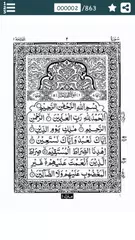 000002 /863
بِسْمِ اللهِ الرَّحْمٰنِ الرَّحِيْمِ
اَلْحَمْدُ لِلّٰهِ رَبِّ الْعٰلَمِيْنَ الرَّحْمٰنِ
الرَّحِيْمِ مٰلِكِ يَوْمِ الدِّيْنِ اِيَّاكَ
نَعْبُدُ وَاِيَّاكَ نَسْتَعِيْنُ
اِهْدِنَا الصِّرَاطَ الْمُسْتَقِيْمَ صِرَاطَ
الَّذِيْنَ اَنْعَمْتَ عَلَيْهِمْ غَيْرِ
الْمَغْضُوْبِ عَلَيْهِمْ وَلَا الضَّآلِّيْنَ